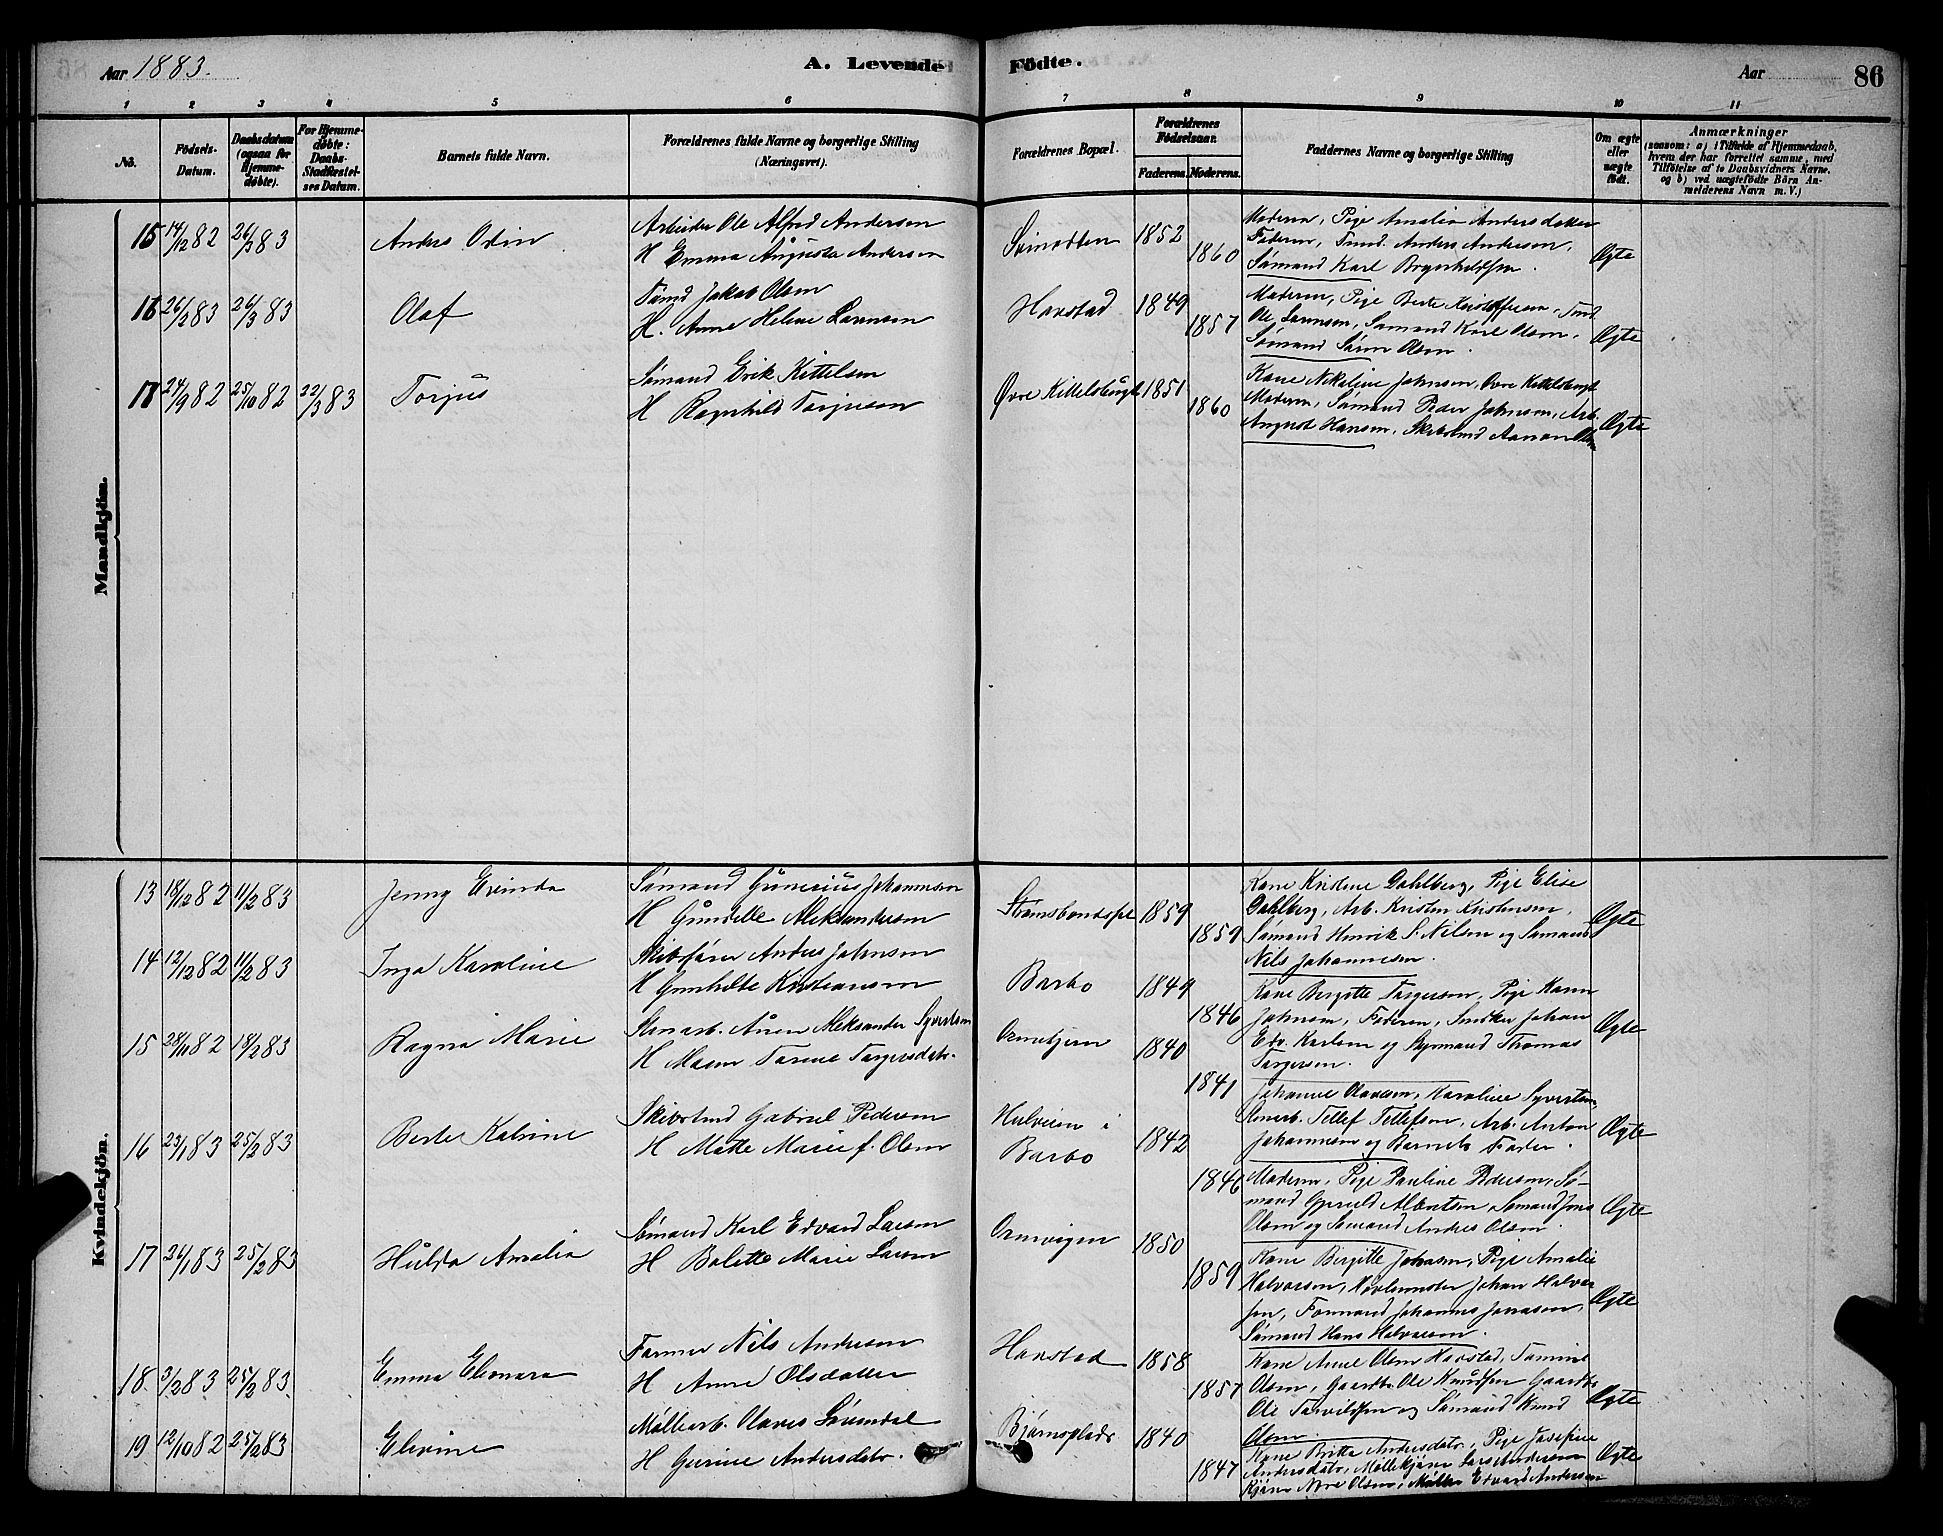 Aar 1883.
A. Levende Födte.
Aar 86
1 2 3 4 5 6 7 8 9 10 11
No.
Födsels-Datum.
Daabsdatum (ogsaa for Hjemme-døbte).
For Hjemme-døbte: Daabs-Stadfæstel-ses Datum.
Barnets fulde Navn.
Forældrenes fulde Navne og borgerlige Stilling (Næringsvei).
Forældrenes Bopæl.
Forældrenes Födselsaar.
Faderens. Moderens.
Faddernes Navne og borgerlige Stilling
Om ægte eller uægte født.
Anmærkninger
(saasom: a) i Tilfælde af Hjemmedaab,
hvem der har forrettet samme, med
Tilföielse af to Daabsvidners Navne.
og b) ved uægtefödte Börn An-
melderens Navn m.V.)
Mandkjön.
15 14/12 82 26/3 83 Anders Odin
Arbeider Ole Alfred Anderson
H Emma Augusta Anderson
1852
1860
Moderen, Pige Amalia Andersdatter
Faderen, Tmd. Anders Anderson,
Sømand Karl
Ægte
16 26/2 83 26/3 83 Olaf
Tømd Jakob Olsen
H. Anne Helene Larensen
Havstad 1849
1857
Moderen, Pige Berte Tmd
Ole Larensen, Sømand Karl Olsen,
Sømand Søren Olsen.
Ægte
17 24/9 82 25/10 82 22/3 83 Torjus
Sømand Erik Kittelsen
H Ragnhild Torjusen
Øvre Kittelsbugt 1851
1860
Kone Nikoline Johnsen, Øvre Kittelsbugt
Moderen, Sømand Peder Johnsen, Arb.
August Hansen, Skibstmd Aanon Olsen
Ægte
Kvindekjön.
13 18/12 82 11/2 83 Jenny Evinda
Sømand Gunerius Johannesen
H Gundelle Aleksandersen
1859
1859
Kone Kristine Dahlberg, Pige Elise
Dahlberg, Arb. Kristen Kristensen,
Sømand Henrik S. Nilsen og Sømand
Nils Johannesen.
Ægte
14 12/12 82 11/2 83 Inga Karoline
Skibsfører Anders Johnsen
H Gunhilde Kristiansen
Barbo 1849
1846
Kone Bergitte Torgersen, Pige Karen
Johnsen, Faderen, Snedker Johan
Edv. Karlsen og Styrmand Thomas
Torgersen.
Ægte
15 28/11 82 18/2 83 Ragna Marie
Stenarb. Aanen Aleksander Syvertsen
H Maren Tarine Torgersdatr.
1840
1841
Johanne Olavesen, Karoline Syvertsen,
Stenarb. Tellef Tellefsen, Arb. Anton
Johannesen og Barnets Fader.
Ægte
16 23/1 83 25/2 83 Berte Katrine
Skibstmd Gabriel Pedersen
H Mette Marie f. Olsen
Hulveien i
Barbo
1842
1846
Moderen, Pige Pauline Pedersen, Sø-
mand Albertsen, Sømand Jens
Olsen og Sømand Andres Olsen.
Ægte
17 26/1 83 25/2 83 Hulda Amalia
Sømand Karl Edvard Larsen
H Bolette Marie Larsen
1850
1859
Kone Birgitte Johnsen, Pige Amalie
Halvorsen, Høvlemester Johan Halvor-
sen, Formand Johannes Jonassen,
Sømand Hans Halvorsen.
Ægte
18. 3/2 83 25/2 83. Emma Eleonara
Farmer Nils Andersen
H Anne Olsdatter
Havstad 1858
1857
Kone Anne Olsen Havstad, Tomine
Olsen, Gaardbr. Ole Knudsen Gaardbr.
Ole Tarvildsen og Sømand Knud
Olsen.
Ægte
19 12/10 82 25/2 83 Elevine
Møllearb. Olaves Løvendal
H Gurine Andersdatr.
Bjørnsplads 1840
1847
Kone Britta Andersdatr., Pige Josefine
Andersdatr., Møllekjører Lars Andersen
Kjører Nere Olsen, Møller Edvard Andersen
Ægte